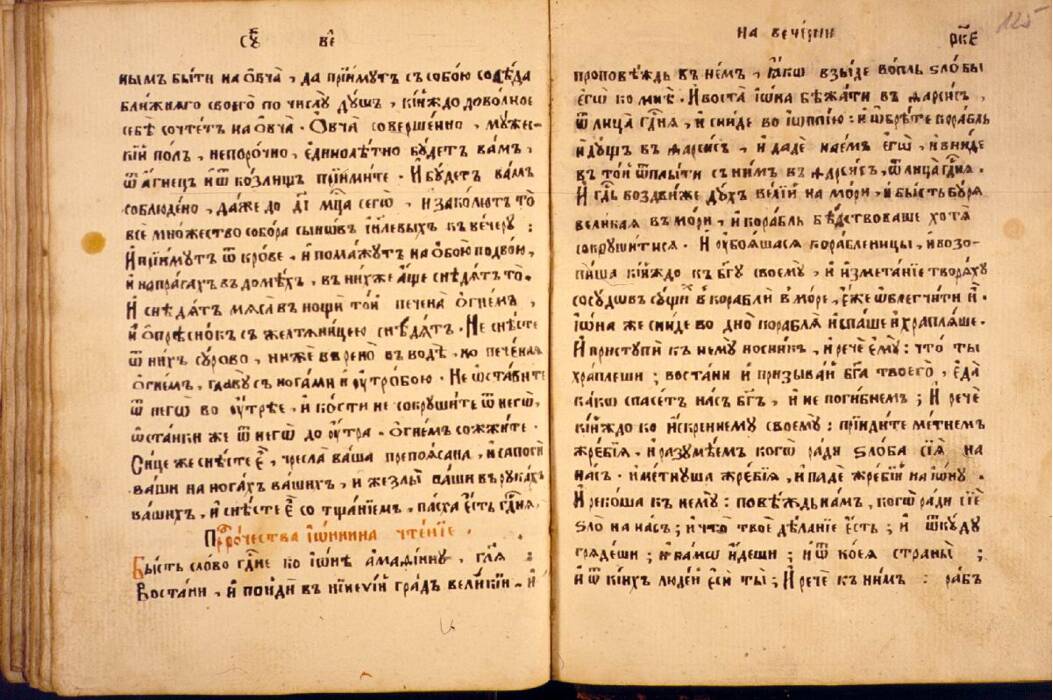 СꙊ҃ ВЕ҃
нымъ бы́ти на ѻ҆вча̀, да прїи́мутъ съ собо́ю сосѣ́да
бли́жнѧго своего̀ по числꙋ̀ дꙋ́шъ, кі́йждо дово́лное
себѣ̀ сочте́тъ на ѻ҆вча̀. Ѻ҆вча̀ соверше́нно, мꙋ́жес-
кїй по́лъ, непоро́чно, є҆динолѣ́тно бꙋ́детъ ва́мъ,
ѿ а҆́гнецъ и҆ ѿ ко́злищъ прїими́те. И҆ бꙋ́детъ ва́мъ
соблюде́но, да́же до д҃і мц҃а сегѡ̀, и҆ зако́лютъ то̀
всѐ мно́жество собо́ра сынѡ́въ і҆и҃левыхъ къ ве́черꙋ:
И҆ прїи́мутъ ѿ кро́ве, и҆ пома́жутъ на ѻ҆бою̀ подво́ю,
и҆ на пра́гахъ въ домѣ́хъ, въ ни́хже а҆́ще снѣдѧ́тъ то̀.
И҆ снѣдѧ́тъ мѧса̀ въ нощѝ то́й пече́на ѻ҆гне́мъ,
и҆ ѻ҆прѣсно́къ съ желтѧни́цею снѣдѧ́тъ. Не снѣ́сте
ѿ ни́хъ сꙋ́рово, нижѐ варено̀ въ водѣ̀, но пече́наѧ
ѻ҆гне́мъ, главꙋ̀ съ нога́ми и҆ оу҆тро́бою. Не ѡ҆ста́вите
ѿ негѡ̀ во оу҆́трѣе, и҆ ко́сти не сокрꙋши́те ѿ негѡ̀,
ѡ҆ста́нки же ѿ негѡ̀ до оу҆́тра. ѻ҆гне́мъ сожжи́те.
Си́це же снѣ́сте є҆̀, чре́сла ва́ша препоѧ́сана, и҆ сапогѝ
ва́ши на нога́хъ ва́шихъ, и҆ жезлы̀ ва́ши въ рꙋка́хъ
ва́шихъ, и҆ снѣ́сте є҆̀ со тща́нїемъ, па́сха є҆́сть гд҇нѧ,
Прⷪ҇ро́чества і҆ѡ́нина чте́нїе.
Бы́сть сло́во гд҇не ко і҆ѡ́нѣ а҆мафі́инꙋ, гл҃ѧ:
Воста́ни, и҆ поидѝ въ нїневі́й гра́дъ вели́кїй. и҆
на вече́рни
РК҃Е
125
проповѣ́ждь въ не́мъ, ꙗ҆́кѡ взы́де во́пль ѕло́бы
є҆гѡ̀ ко мнѣ̀. И҆ воста̀ і҆ѡ́на бѣжа́ти въ ѳарсі́съ,
ѿ лица̀ гд҇нѧ, и҆ сни́де во і҆ѡппі́ю: и҆ ѡ҆брѣ́те кора́бль
и҆дꙋ́щъ въ ѳарсі́съ, и҆ дадѐ нае́мъ є҆гѡ̀, и҆ вни́де
въ то́й ѿплы́ти съ ни́мъ въ ѳарсі́съ, ѿ лица̀ гд҇нѧ.
И҆ гд҇ь воздви́же дꙋ́хъ ве́лїй на мо́ри, и҆ бы́сть бꙋ́рѧ
вели́каѧ въ мо́ри, и҆ кора́бль бѣ́дствоваше хотѧ̀
сокрꙋши́тисѧ. И҆ оу҆боѧ́шасѧ кора́бленицы, и҆ возо-
пи́ша кі́йждо къ бг҃ꙋ своемꙋ̀, и҆ и҆змета́нїе творѧ́хꙋ
сосꙋ́дѡвъ сꙋ́щих въ корабли̑ в мо́ре, є҆́же ѡ҆блегчи́ти и҆̀.
І҆ѡ́на же сни́де во дно̀ кораблѧ̀ и҆ спа́ше и҆ храплѧ́ше.
И҆ пристꙋпѝ къ немꙋ̀ но́сникъ, и҆ речѐ є҆мꙋ̀: что̀ ты̀
хра́плеши; воста́ни и҆ призыва́й бг҃а твоего̀, є҆да̀
ка́кѡ спасе́тъ на́съ бг҃ъ, и҆ не поги́бнемъ; И҆ речѐ
кі́йждо ко и҆́скреннемꙋ своемꙋ̀: прїиди́те ме́тнемъ
жре́бїѧ, и҆ разꙋмѣ́емъ когѡ̀ ра́ди ѕло́ба сїѧ̀ на
на́съ. и҆ метнꙋ́ша жре́бїѧ, и҆ падѐ жре́бїй на і҆ѡ́нꙋ.
И҆ реко́ша къ немꙋ̀: повѣ́ждь на́мъ, когѡ̀ ра́ди сїѐ
ѕло̀ на на́съ; и҆ что̀ твоѐ дѣ́ланїе є҆́сть; и҆ ѿкꙋ́дꙋ
грѧде́ши; и҆ ка́мѡ и҆́деши; и҆ ѿ ко́еѧ страны̀;
и҆ ѿ кі́ихъ люде́й є҆сѝ ты̀; И҆ речѐ къ ни̑мъ: ра́бъ